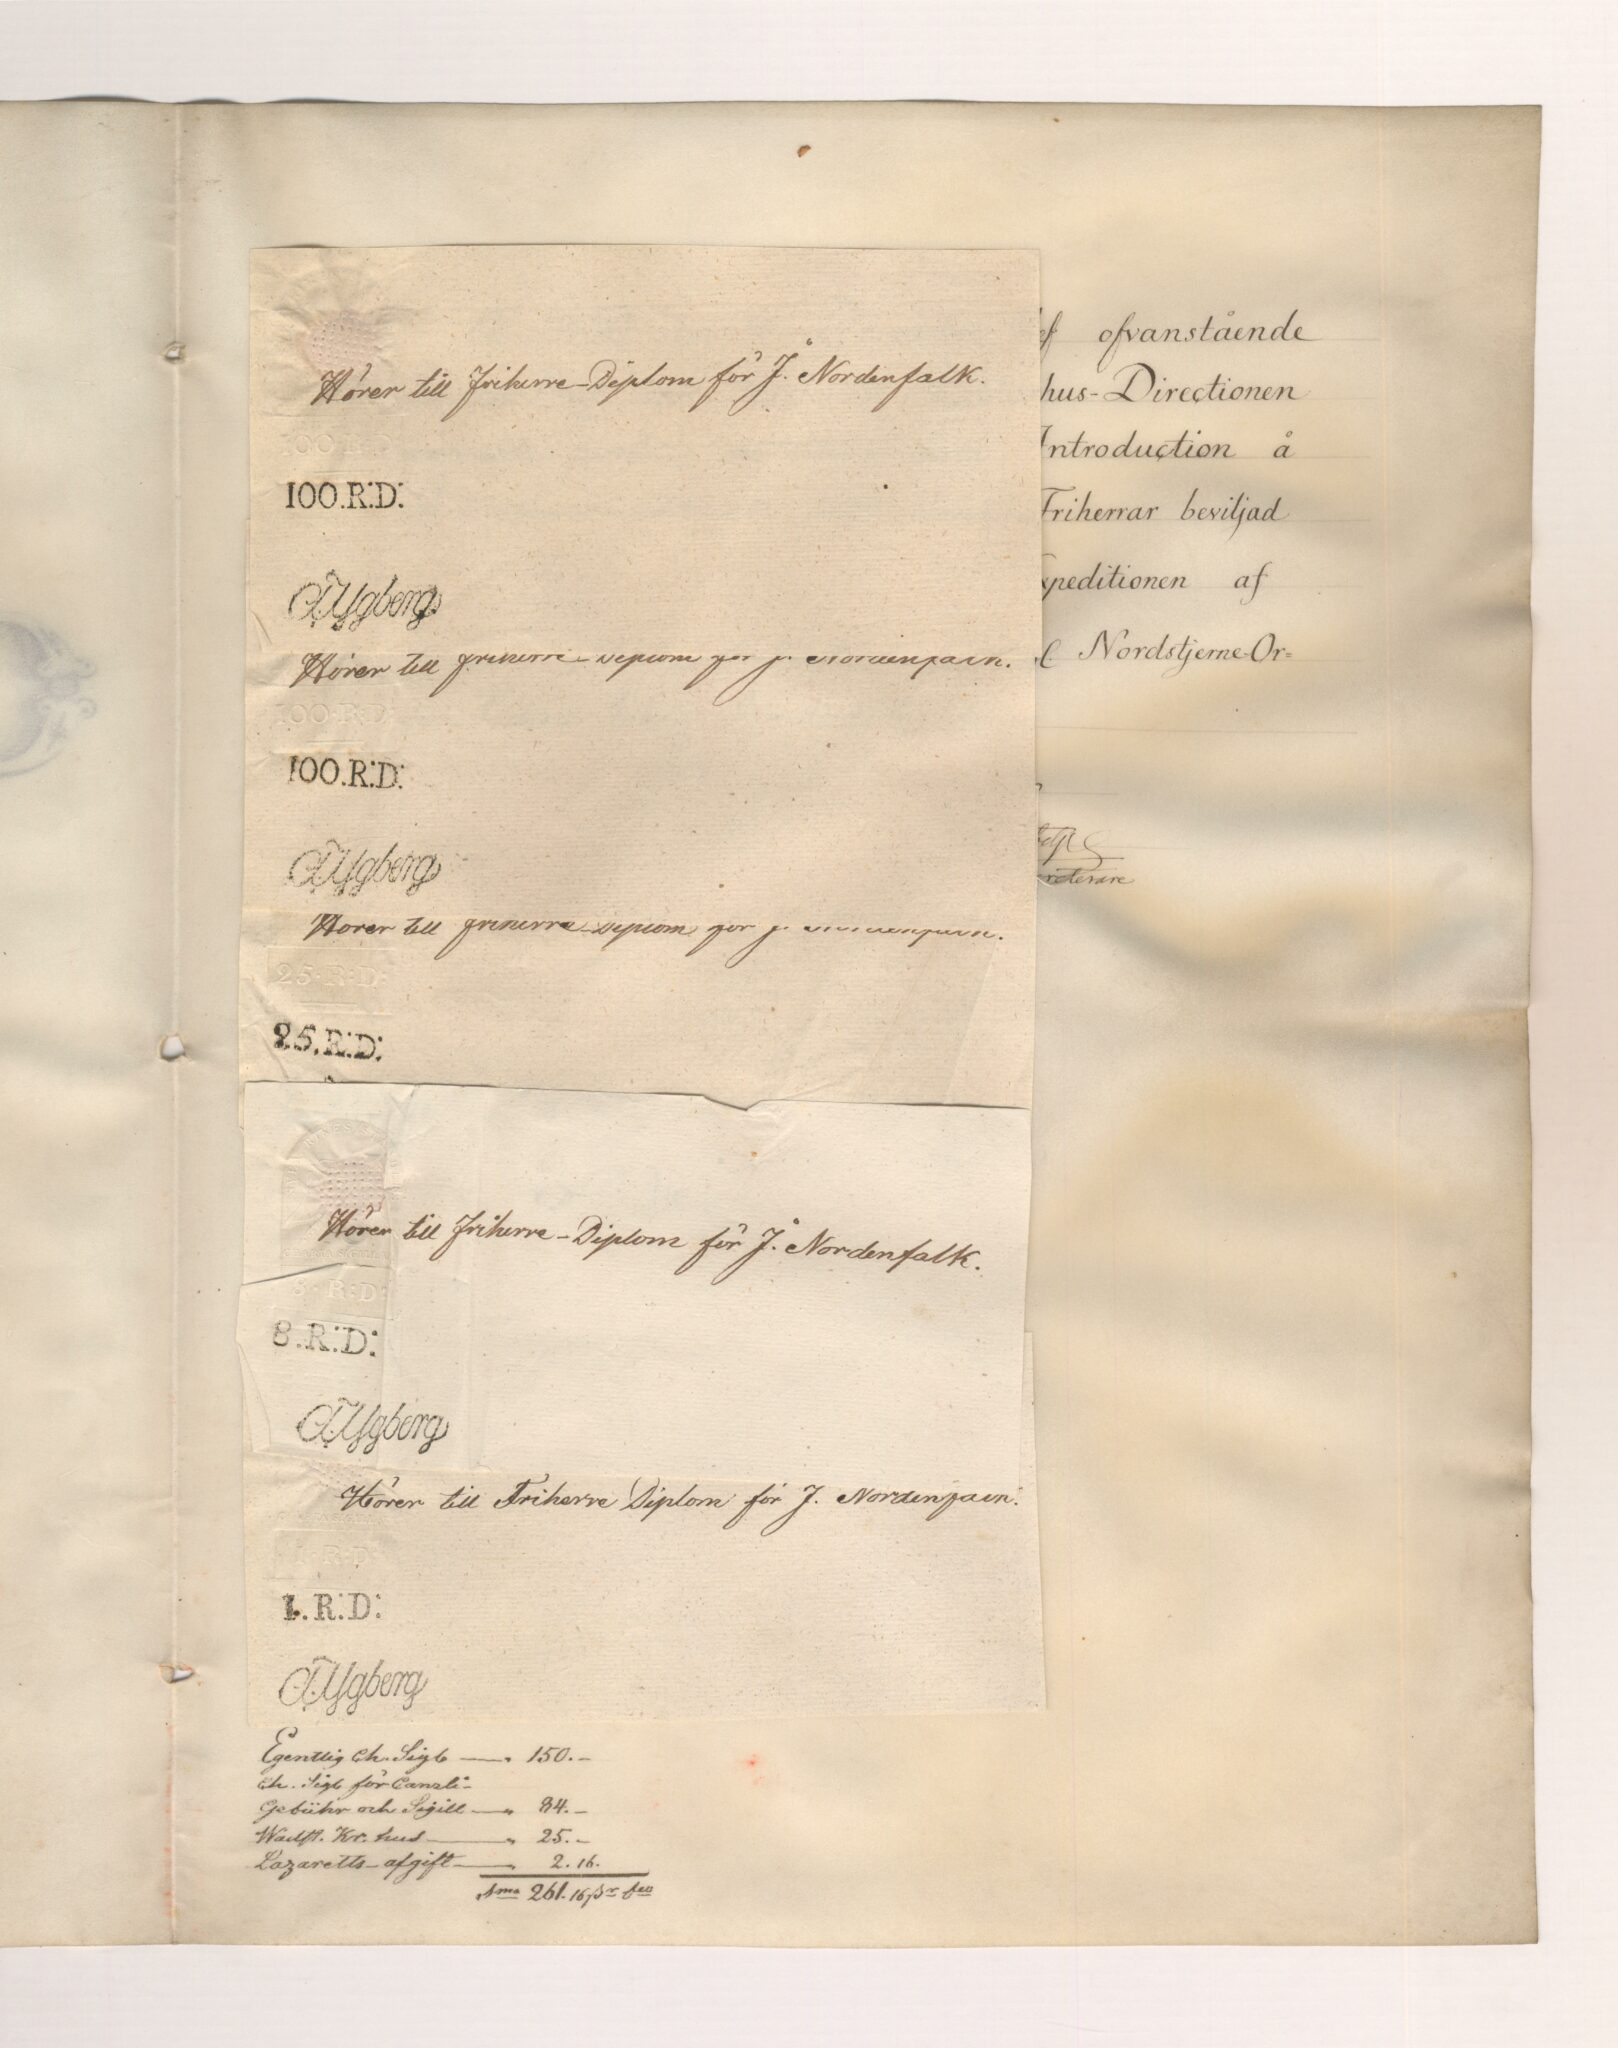 Hörer till Friherre-Diplom för J. Nordenfalk.
100.R:D:
100.R:D:
AYgberg
Hörer till Friherre-Diplom för J. Nordenfalk.
100.R:D:
100.R:D:
AYgberg
Hörer till Friherre-Diplom för J. Nordenfalk.
25.R:D:
25.R:D:
Hörer till Friherre-Diplom för J. Nordenfalk.
8.R:D:
8.R:D:
AYgberg
Hörer till Friherre Diplom för J. Nordenfalk.
1.R:D:
1.R:D:
AYgberg
Egentlig Ch. Sigt — „ 150.–
Ch. Sigt för Canzli-
Gebühr och Sigill — „ 84.–
Wadst. Kr. hus — „ 25.–
Lazaretts-afgift — „ 2.16.
Sma 261.16 ß
ofvanstående
hus-Directionen
Introduction å
Friherrar beviljad
xpeditionen af
Nordstjerne-Or=
reterare